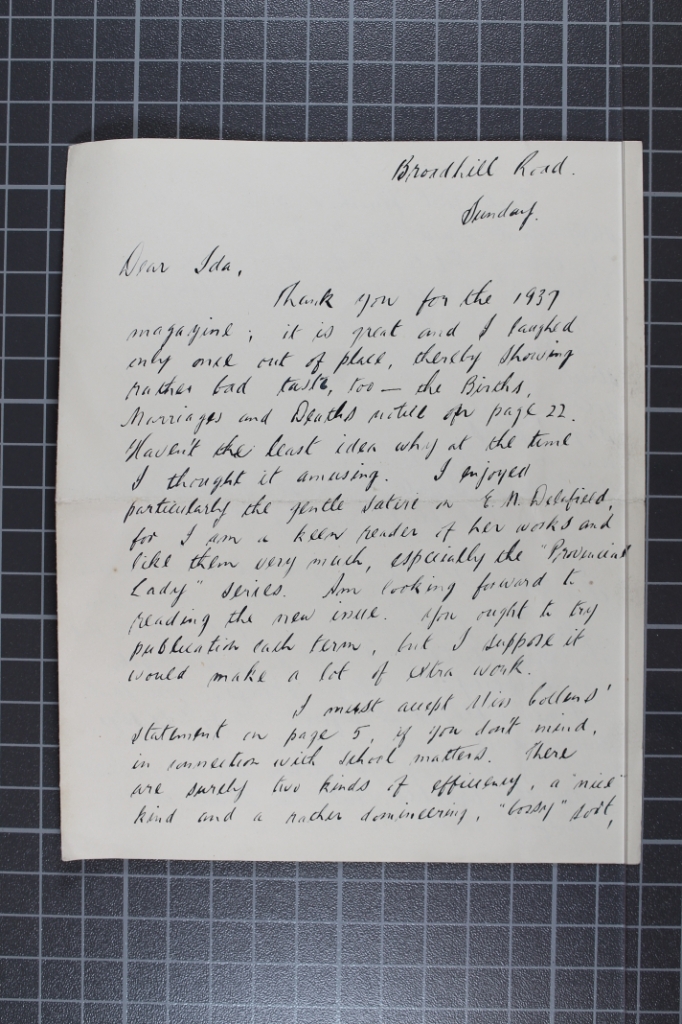 Broadhill Road.
Sunday.
Dear Ida,
Thank you for the 1937
magazine; it is great and I laughed
only once out of place, thereby showing
rather bad taste, too — the Births,
Marriages and Deaths notice on page 22.
Haven't the least idea why at the time
I thought it amusing. I enjoyed
particularly the gentle satire on E. M. Delafield,
for I am a keen reader of her works and
like them very much, especially the "Provincial
Lady" series. Am looking forward to
reading the new issue. You ought to try
publication each term, but I suppose it
would make a lot of extra work.
I must accept Miss Collens'
statement on page 5, if you don't mind,
in connection with school matters. There
are surely two kinds of efficiency, a "nice"
kind and a rather domineering, "bossy" sort,